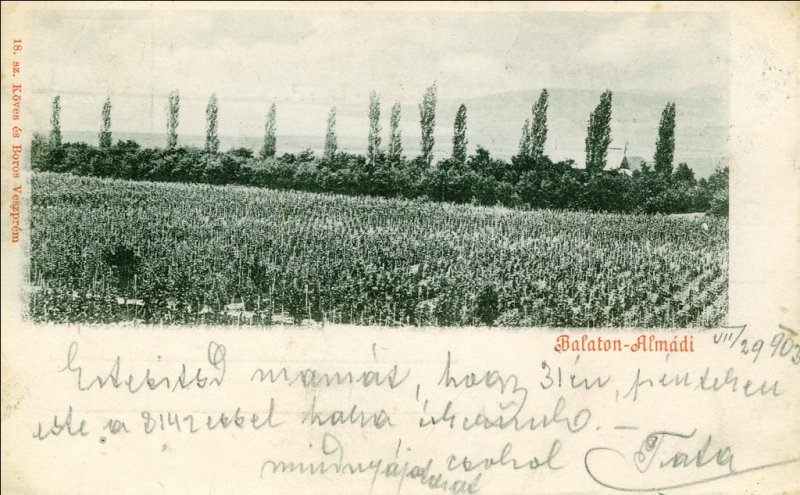 18. sz. Köves és Boros Veszprém
Balaton-Almádi
VII/29 903
Értesitsd mamát, hogy 31én, pénteken
este a 814zessel haza érkezünk. –
mindnyájotokat csokol Tata